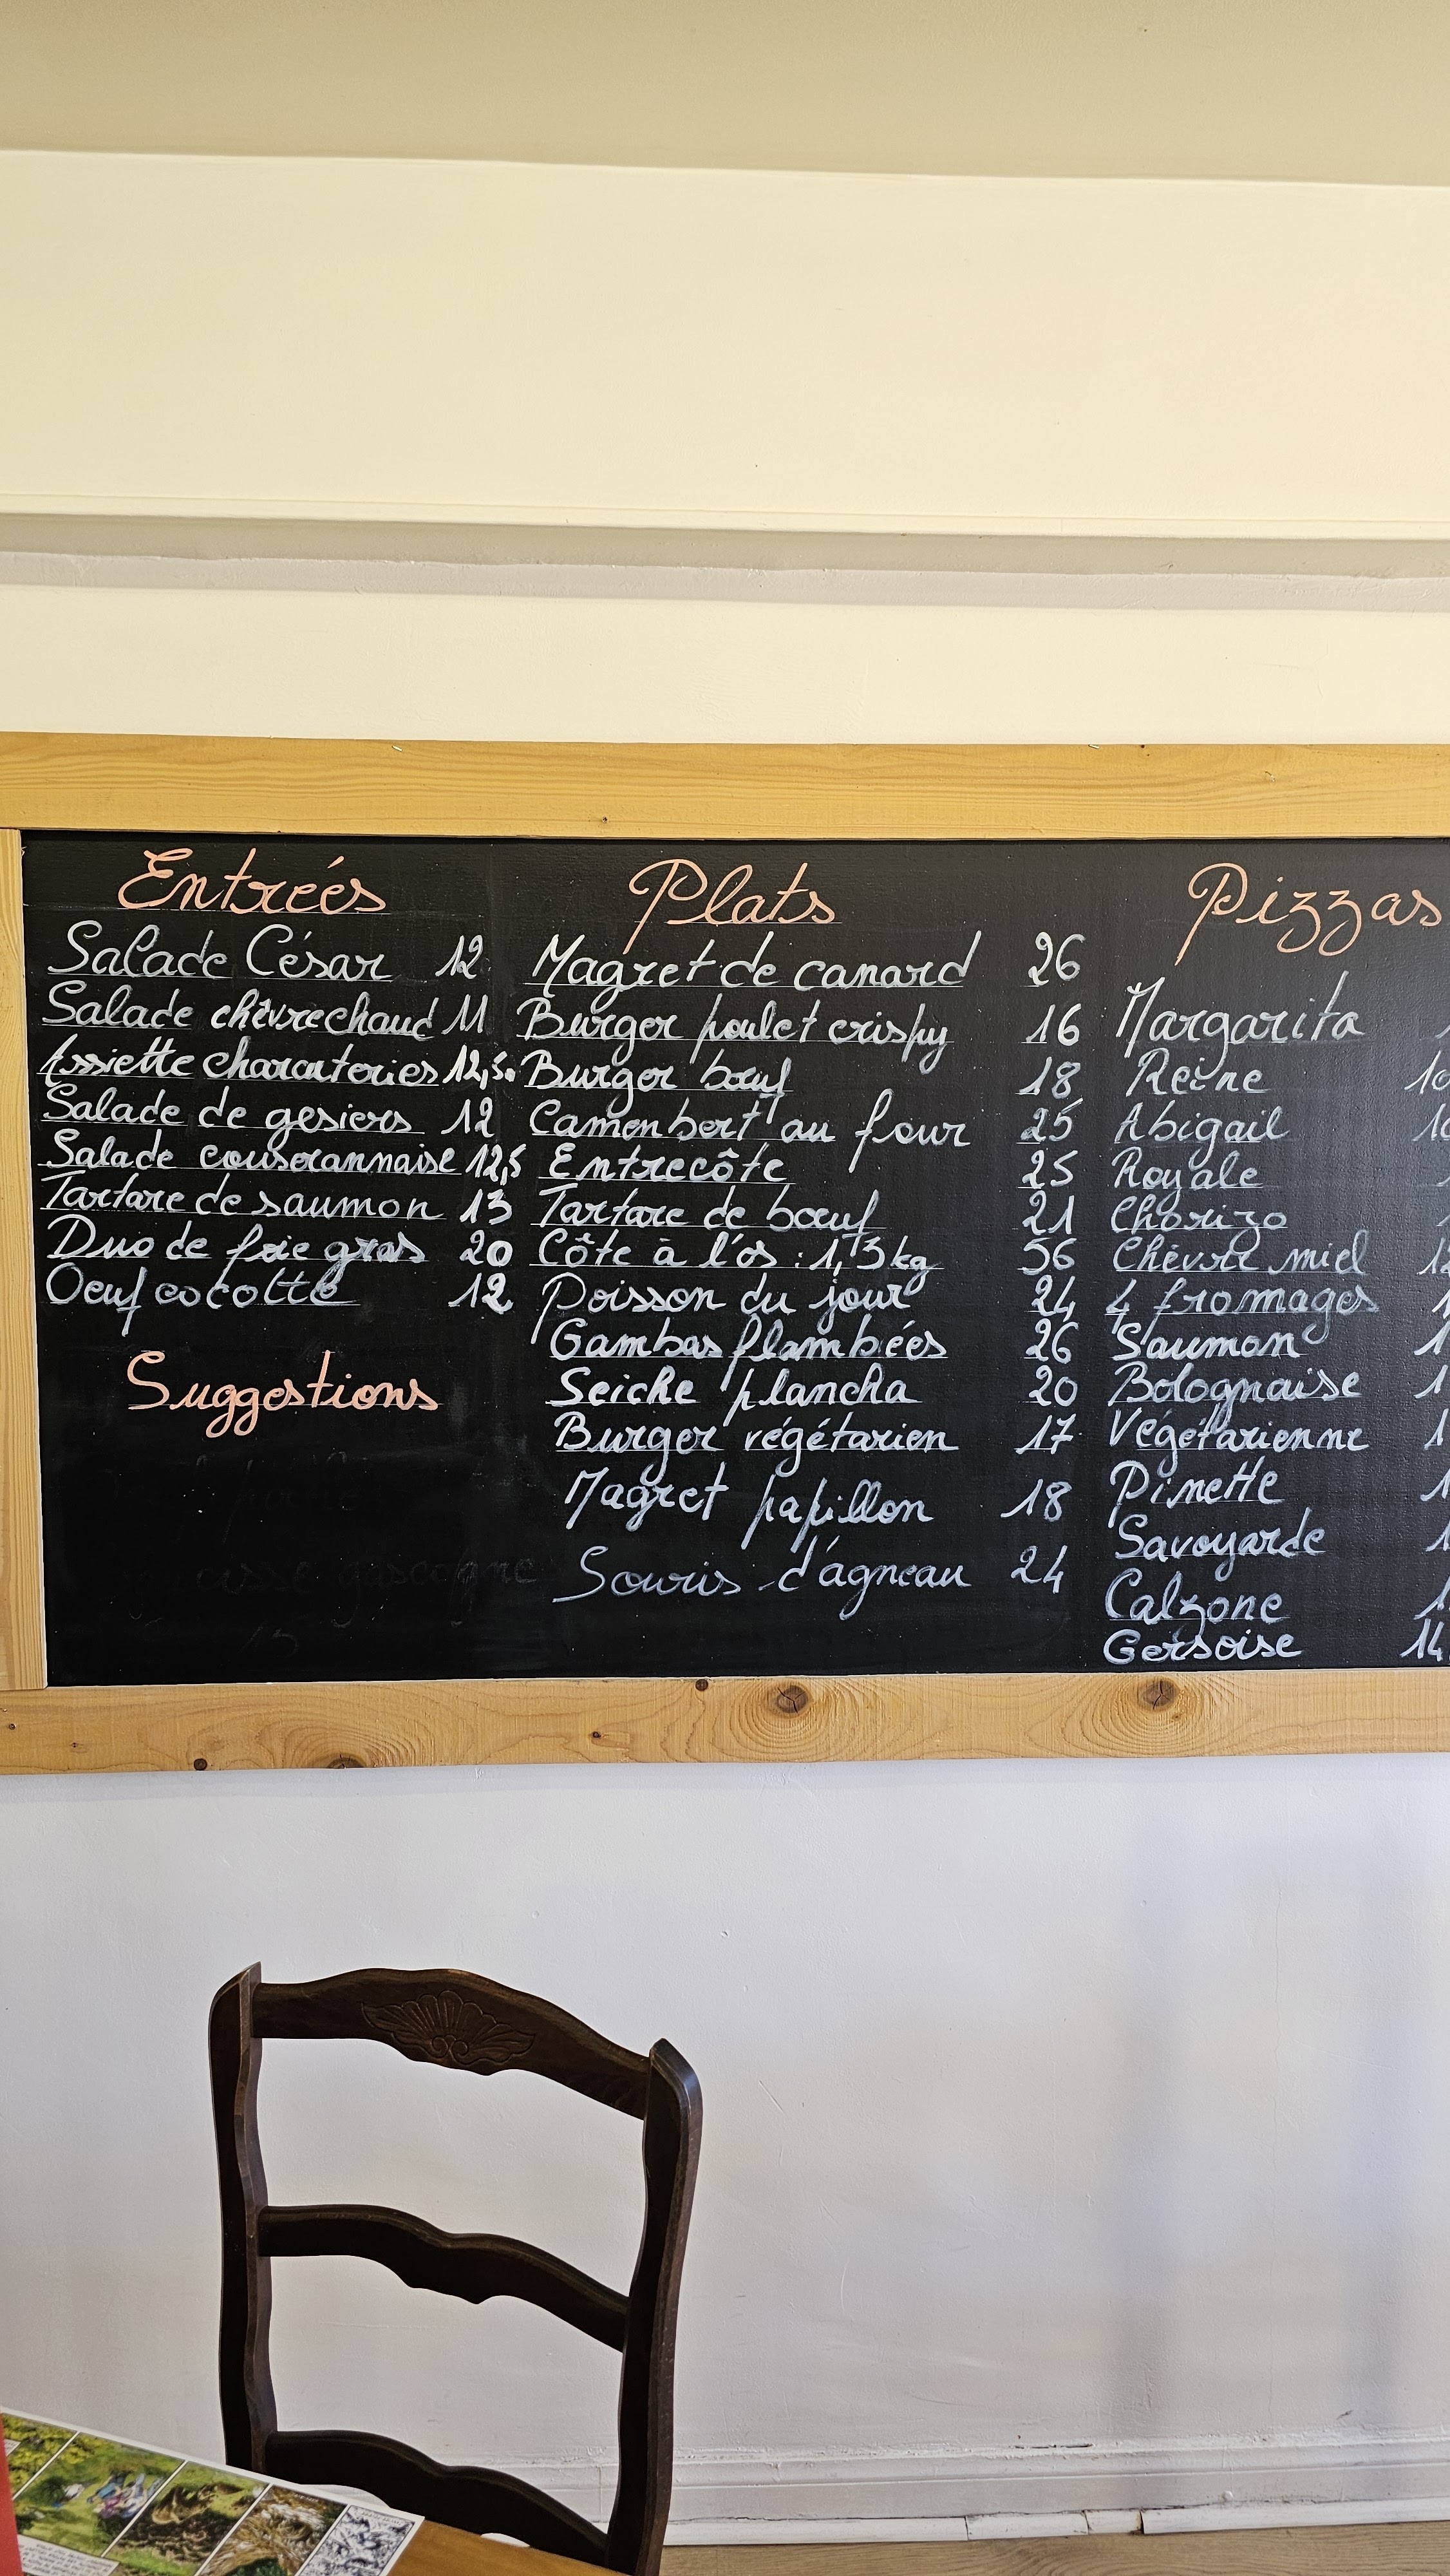 Entrées
Salade César 12
Salade chèvre chaud 11
Assiette charcuteries 12,50
Salade de gesiers 12
Salade couserannaise 12,5
Tartare de saumon 13
Duo de foie gras 20
Oeuf cocotte 12
Suggestions
Plats
Magret de canard 26
Burger poulet crispy 16
Burger bœuf 18
Camembert au four 25
Entrecôte 25
Tartare de bœuf 21
Côte à l'os : 1,3 kg 56
Poisson du jour 24
Gambas flambées 26
Seiche plancha 20
Burger végétarien 17
Magret papillon 18
Souris d'agneau 24
Pizzas
Margarita
Reine
Abigail
Royale
Chorizo
Chèvre miel
4 fromages
Saumon
Bolognaise
Végétarienne
Pinette
Savoyarde
Calzone
Gersoise 14